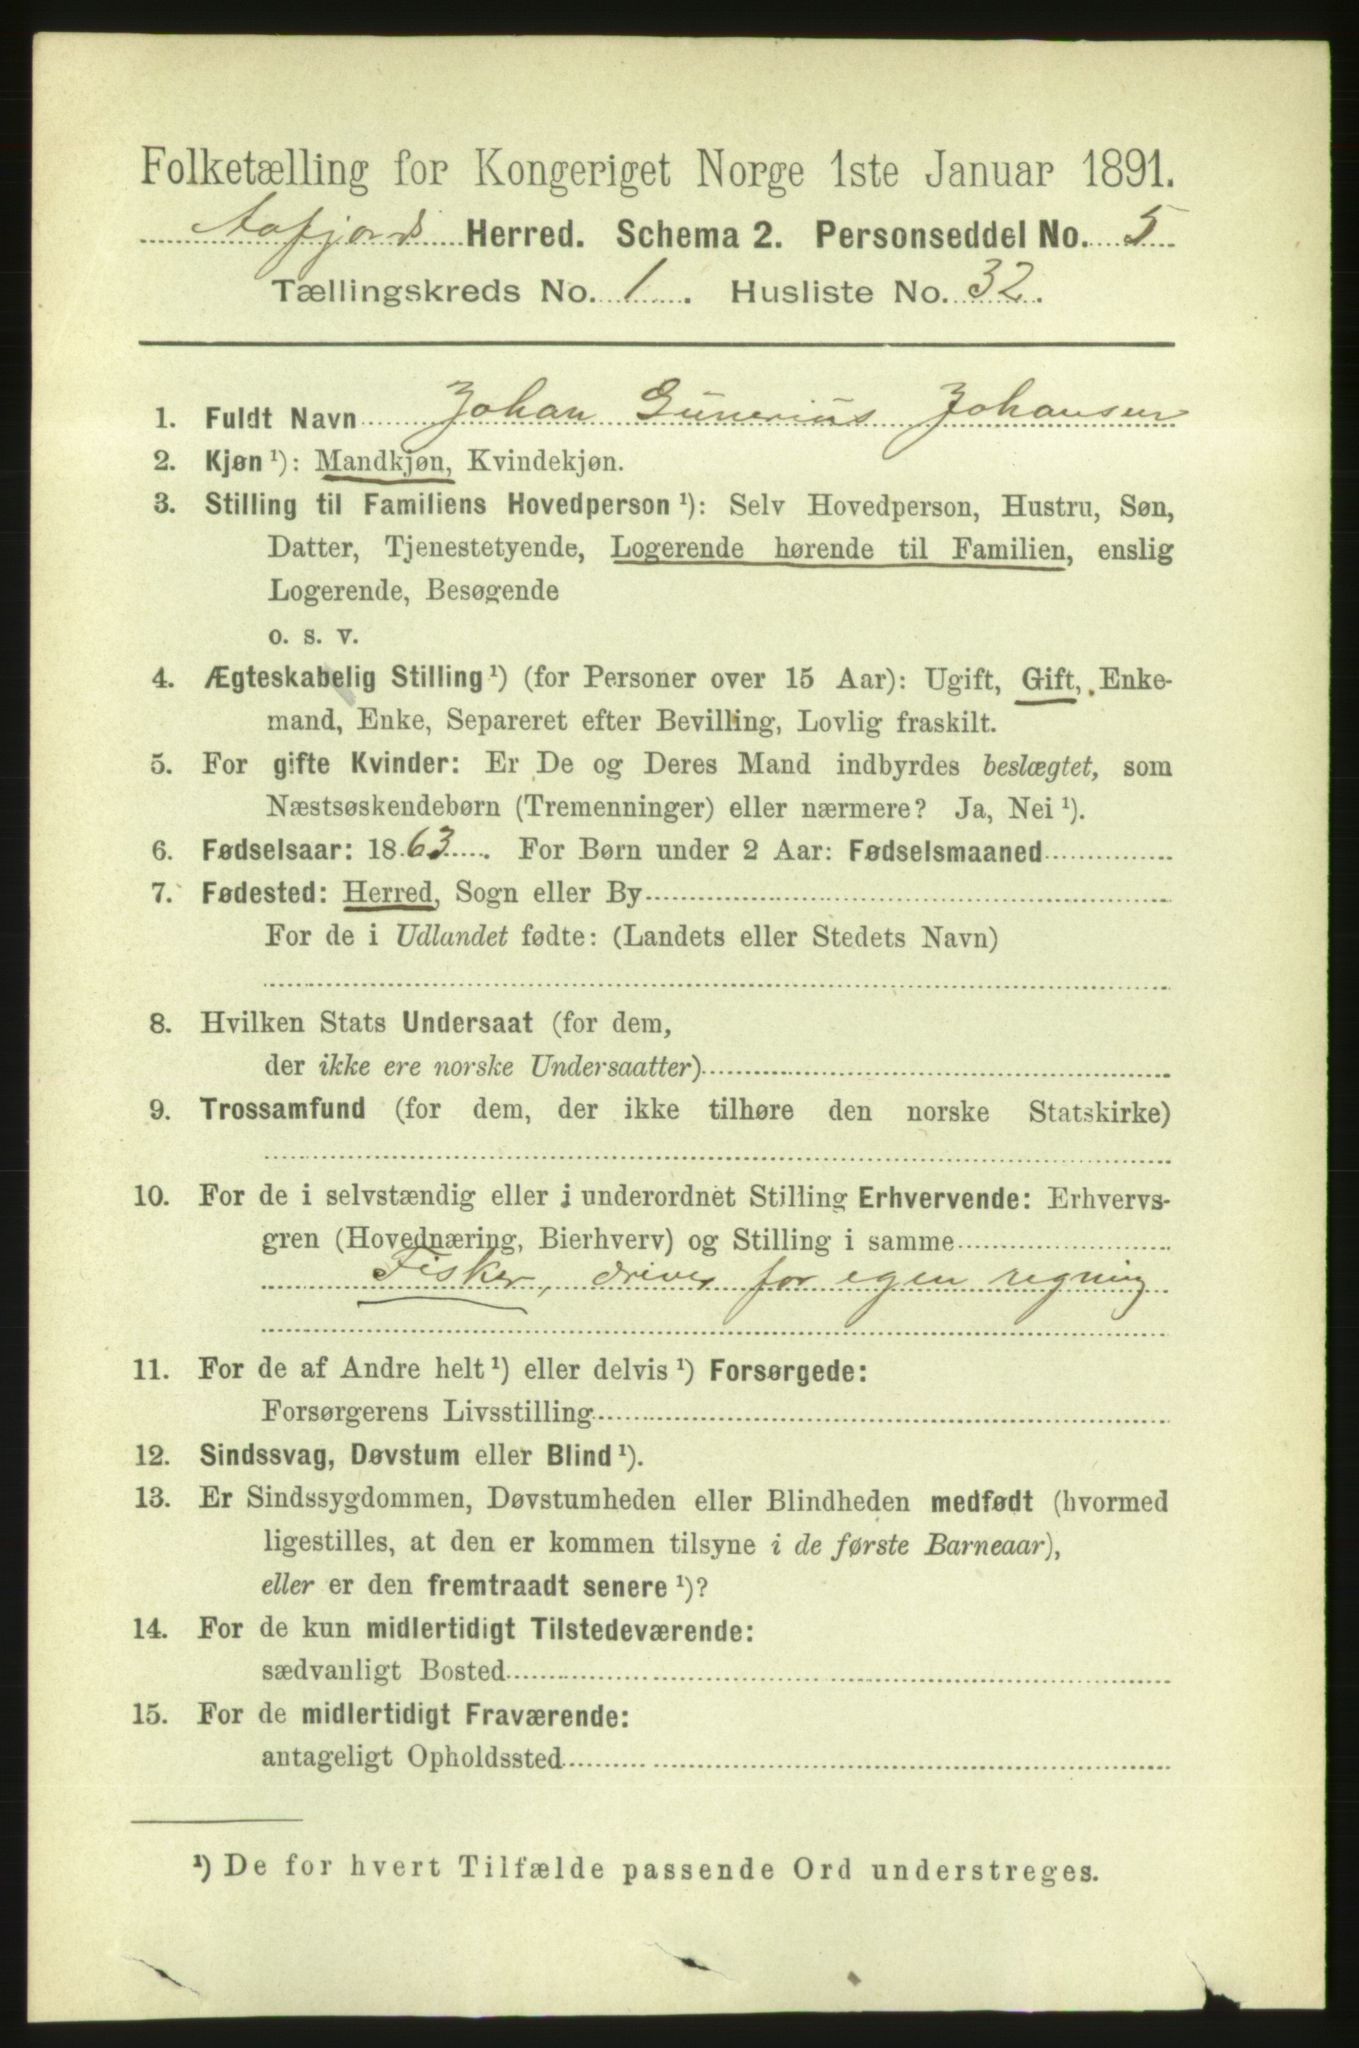 Folketælling for Kongeriget Norge 1ste Januar 1891.
Aafjords Herred. Schema 2. Personseddel No. 5
Tællingskreds No. 1. Husliste No. 32.
1. Fuldt Navn Johan Gunerius Johansen
2. Kjøn ¹): Mandkjøn, Kvindekjøn.
3. Stilling til Familiens Hovedperson ¹): Selv Hovedperson, Hustru, Søn,
Datter, Tjenestetyende, Logerende hørende til Familien, enslig
Logerende, Besøgende
o. s. v.
4. Ægteskabelig Stilling ¹) (for Personer over 15 Aar): Ugift, Gift, Enke-
mand, Enke, Separeret efter Bevilling, Lovlig fraskilt.
5. For gifte Kvinder: Er De og Deres Mand indbyrdes beslægtet, som
Næstsøskendebørn (Tremenninger) eller nærmere? Ja, Nei ¹).
6. Fødselsaar: 1863. For Børn under 2 Aar: Fødselsmaaned
7. Fødested: Herred, Sogn eller By
For de i Udlandet fødte: (Landets eller Stedets Navn)
8. Hvilken Stats Undersaat (for dem,
der ikke ere norske Undersaatter)
9. Trossamfund (for dem, der ikke tilhøre den norske Statskirke)
10. For de i selvstændig eller i underordnet Stilling Erhvervende: Erhvervs-
gren (Hovednæring, Bierhverv) og Stilling i samme
Fisker, driver for egen regning
11. For de af Andre helt ¹) eller delvis ¹) Forsørgede:
Forsørgerens Livsstilling
12. Sindssvag, Døvstum eller Blind ¹).
13. Er Sindssygdommen, Døvstumheden eller Blindheden medfødt (hvormed
ligestilles, at den er kommen tilsyne i de første Barneaar),
eller er den fremtraadt senere ¹)?
14. For de kun midlertidigt Tilstedeværende:
sædvanligt Bosted
15. For de midlertidigt Fraværende:
antageligt Opholdssted
¹) De for hvert Tilfælde passende Ord understreges.